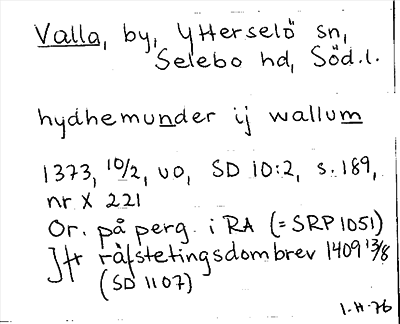 Valla, by, Ytterselö sn,
Selebo hd, Söd.l.
hydhemunder ij wallum
1373, 10/2, uo, SD 10:2, s. 189,
nr X 221
Or. på perg. i RA (= SRP 1051)
Jfr räfstetingsdombrev 1409 13/8
(SD 1107)
1-H-76